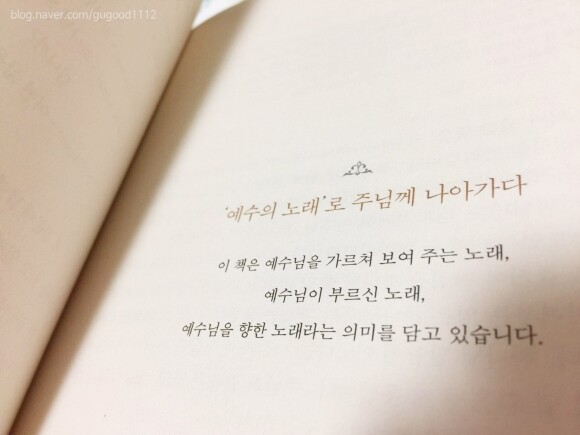 blog.naver.com/gugood1112
‘예수의 노래’로 주님께 나아가다
이 책은 예수님을 가르쳐 보여 주는 노래,
예수님이 부르신 노래,
예수님을 향한 노래라는 의미를 담고 있습니다.